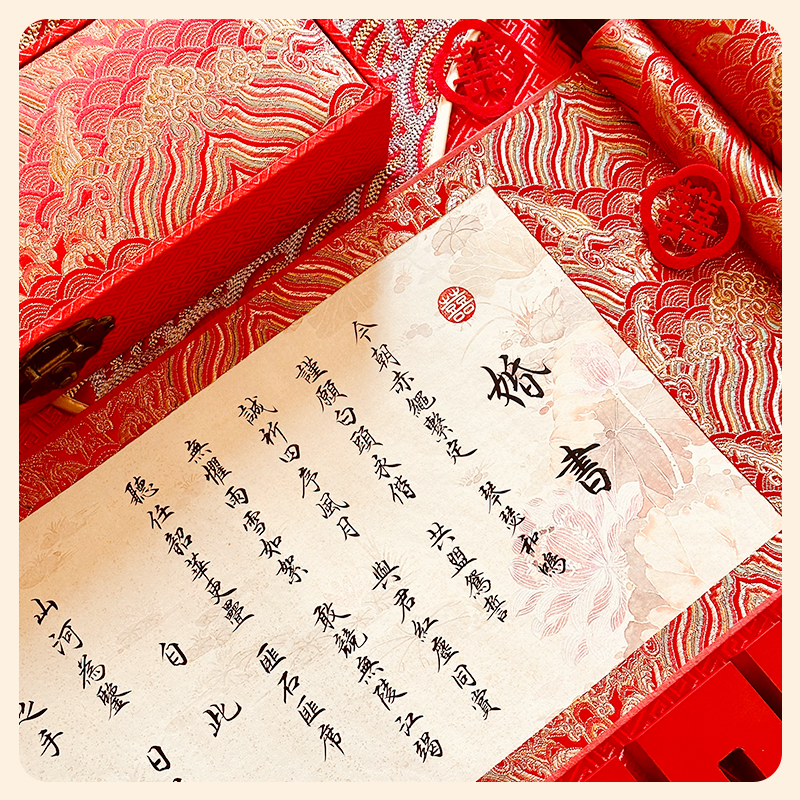 囍
囍
囍
婚書
今朝赤繩繫定 琴瑟和鳴
謹願白頭永偕 共盟鴛誓
誠祈四序風月 與君紅塵同賞
無懼雨雪如絮 敢競無陵江竭
聽任韶華更疊 匪石匪席
自此
山河為鑒 日
手